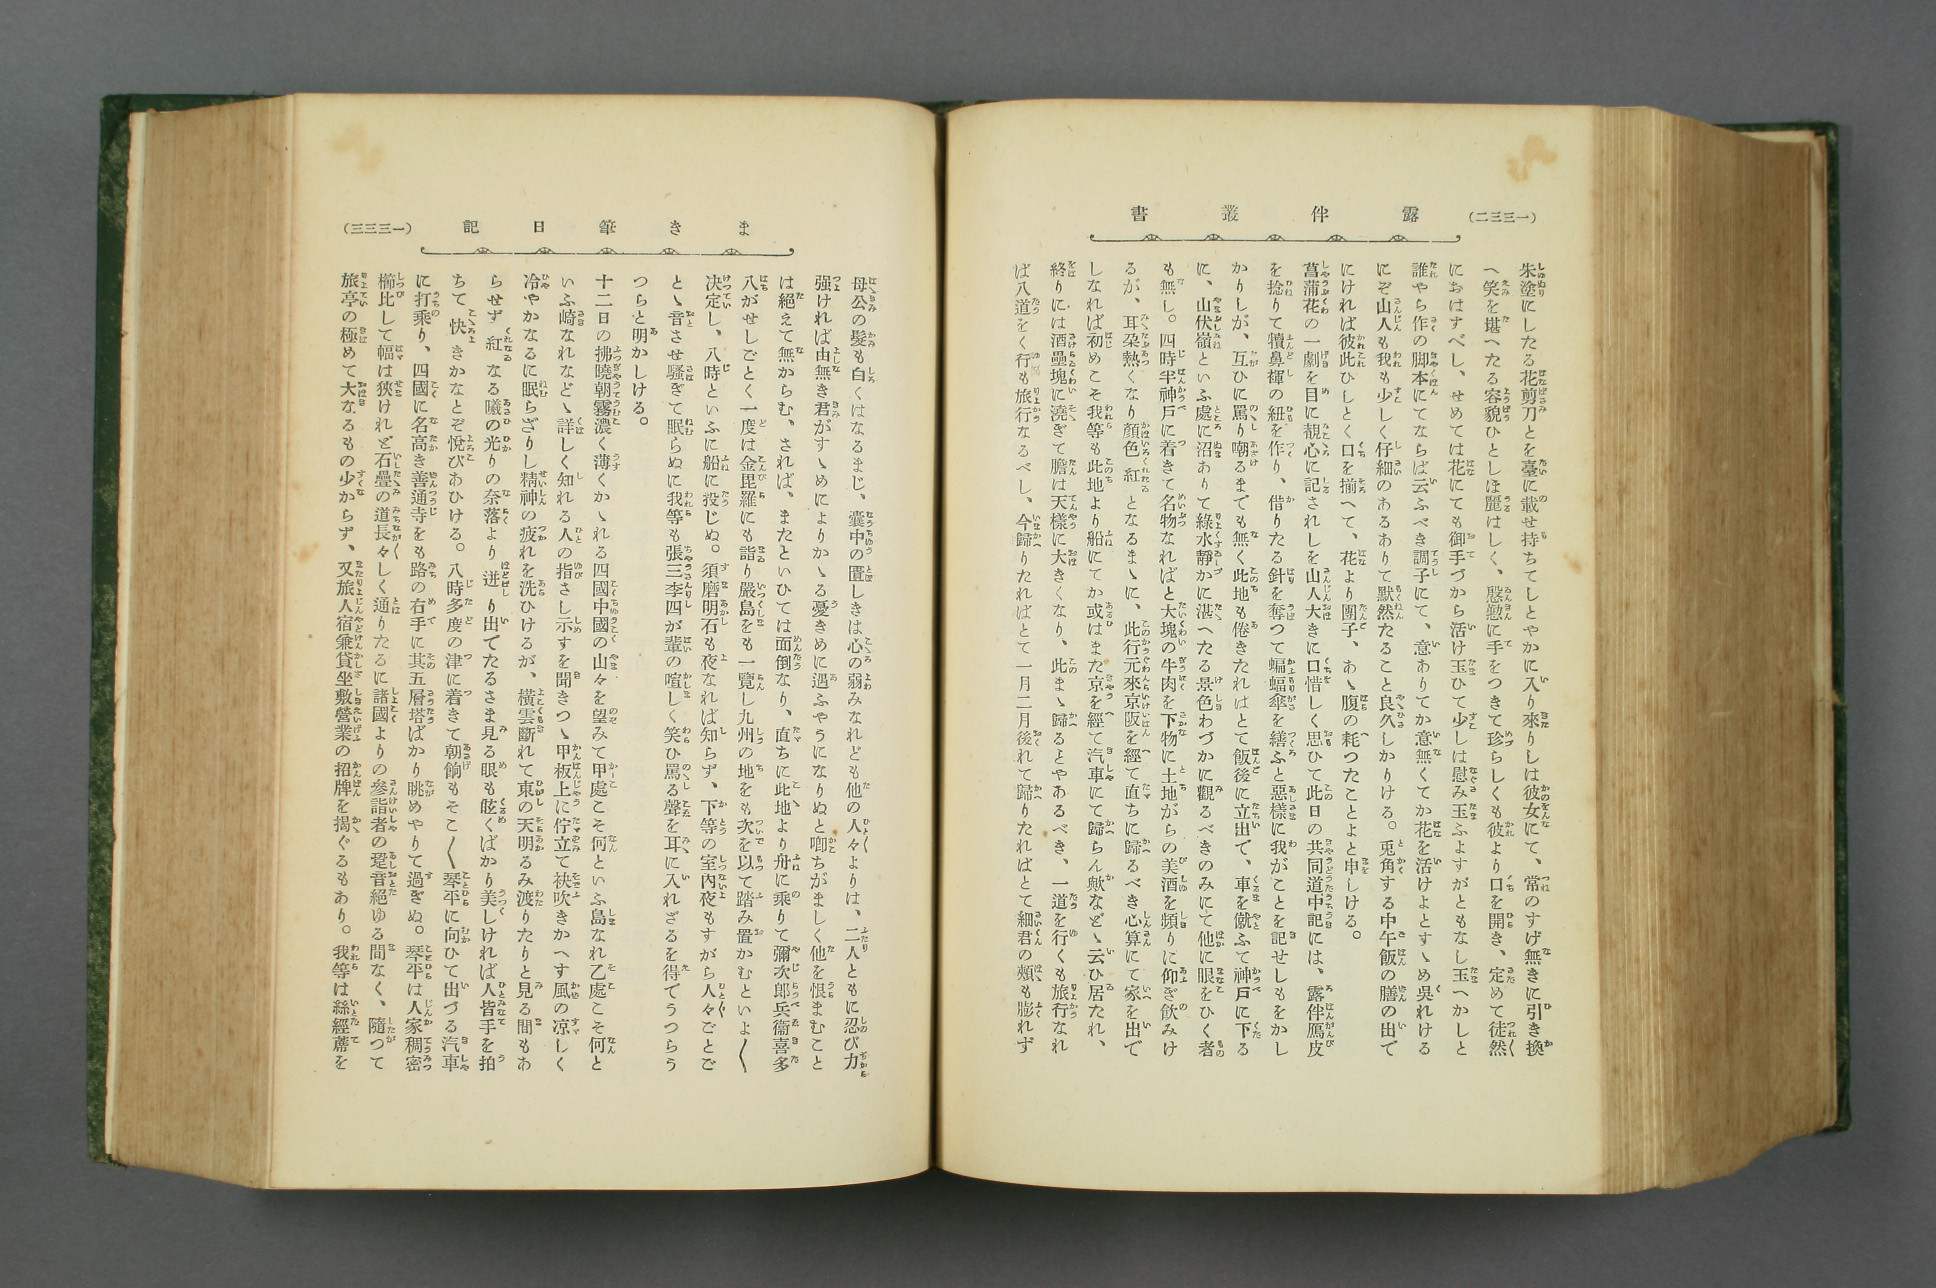 (一三三二)
露伴叢書
朱塗にしたる花剪刀とを臺に載せ持ちてしとやかに入り來りしは彼女にて、常のすげ無きに引き換
へ笑を堪へたる容貌ひとしほ麗はしく、慇懃に手をつきて珍らしくも彼より口を開き、定めて徒然
におはすべし、せめては花にても御手づから活け玉ひて少しは慰み玉ふよすがともなし玉へかしと
誰やら作の脚本にてならば云ふべき調子にて、意ありてか意無くてか花を活けよとすゝめ呉れける
にぞ山人も我も少しく仔細のあるありて默然たること良久しかりける。兎角する中午飯の膳の出で
にければ彼此ひしとく口を揃へて、花より團子、あゝ腹の耗つたことよと申しける。
菖蒲花の一劇を目に覩心に記されしを山人大きに口惜しく思ひて此日の共同道中記には、露伴鴈皮
を捻りて犢鼻褌の紐を作り、借りたる針を奪つて蝙蝠傘を繕ふと惡樣に我がことを記せしもをかし
かりしが、互ひに罵り嘲るまでも無く此地も倦きたればとて飯後に立出で、車を僦ふて神戸に下る
に、山伏嶺といふ處に沼ありて綠水靜かに湛へたる景色わづかに觀るべきのみにて他に眼をひく者
も無し。四時半神戸に着きて名物なればと大塊の牛肉を下物に土地がらの美酒を頻りに仰ぎ飮みけ
るが、耳朶熱くなり顏色紅となるまゝに、此行元來京阪を經て直ちに歸るべき心算にて家を出で
しなれば初めこそ我等も此地より船にてか或はまた京を經て汽車にて歸らん歟などゝ云ひ居たれ、
終りには酒壘塊に澆ぎて膽は天樣に大きくなり、此まゝ歸るとやあるべき、一道を行くも旅行なれ
ば八道をく行も旅行なるべし、今歸りたればとて一月二月後れて歸りたればとて細君の頰も膨れず
(一三三三)
まき筆日記
母公の髮も白くはなるまじ、囊中の匱しきは心の弱みなれども他の人々よりは、二人ともに忍び力
强ければ由無き君がすゝめによりかゝる憂きめに遇ふやうになりぬと喞ちがましく他を恨まむこと
は絕えて無からむ、されば、またといひては面倒なり、直ちに此地より舟に乘りて彌次郎兵衞喜多
八がせしごとく一度は金毘羅にも詣り嚴島をも一覽し九州の地をも次を以て踏み置かむといよ〱
決定し、八時といふに船に投じぬ。須磨明石も夜なれば知らず、下等の室內夜もすがら人々ごとご
とゝ音させ騷ぎて眠らぬに我等も張三李四が輩の喧しく笑ひ罵る聲を耳に入れざるを得でうつらう
つらと明かしける。
十二日の拂曉朝霧濃く薄くかゝれる四國中國の山々を望みて甲處こそ何といふ島なれ乙處こそ何と
いふ崎なれなどゝ詳しく知れる人の指さし示すを聞きつゝ甲板上に佇立て袂吹きかへす風の凉しく
冷やかなるに眠らざりし精神の疲れを洗ひけるが、橫雲斷れて東の天明るみ渡りたりと見る間もあ
らせず紅なる曦の光りの奈落より迸り出でたるさま見る眼も眩くばかり美しければ人皆手を拍
ちて快きかなとぞ悅びあひける。八時多度の津に着きて朝餉もそこ〱琴平に向ひて出づる汽車
に打乘り、四國に名高き善通寺をも路の右手に其五層塔ばかり眺めやりて過ぎぬ。琴平は人家稠密
櫛比して幅は狹けれど石疊の道長々しく通りたるに諸國よりの參詣者の跫音絕ゆる間なく、隨つて
旅亭の極めて大なるもの少からず、又旅人宿兼貸坐敷營業の招牌を揭ぐるもあり。我等は絲經蓆を